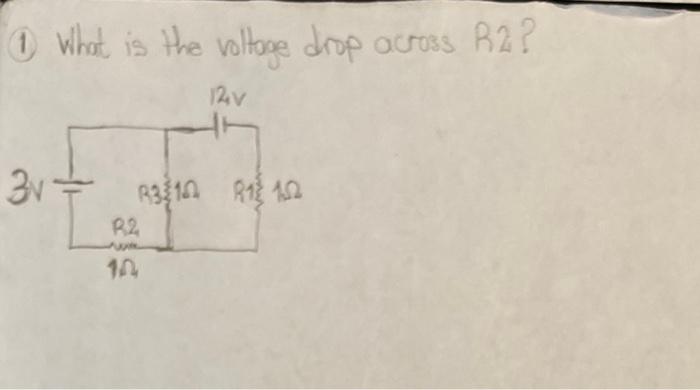 ① What is the voltage drop across R2?
12v
3v R3 1Ω R1 1Ω
R2
1Ω